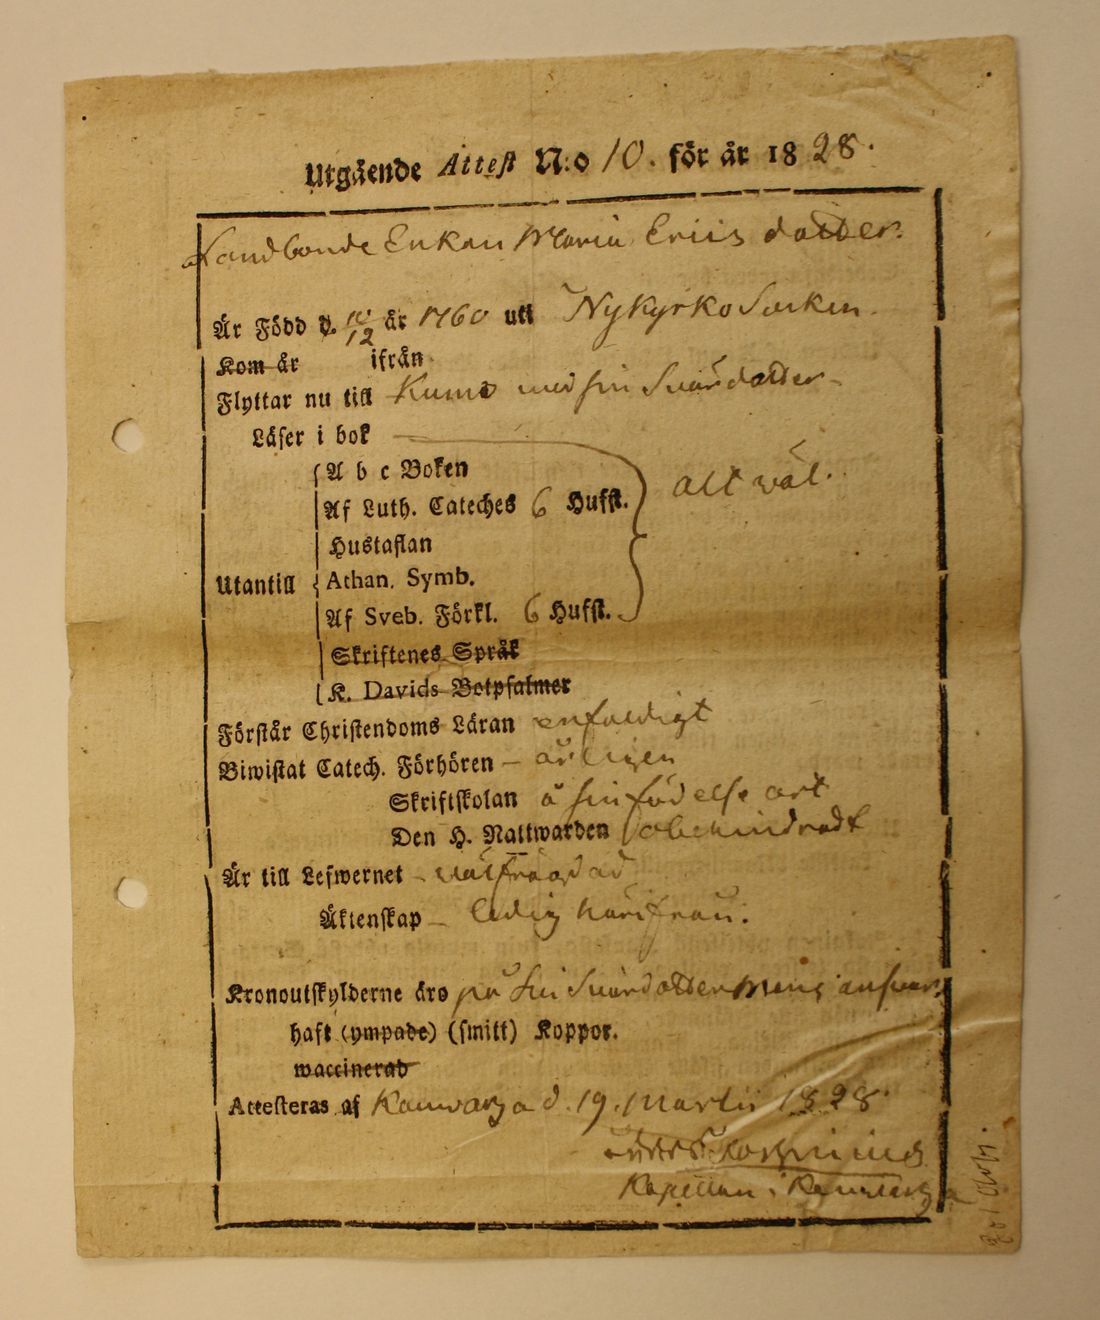 Utgående Attest N:o 10. för år 1828.
Landbonde Enkan Maria Eriis dotter.
Är Född d. 10/12 år 1760 uti Nykyrko Sockn.
Kom år ifrån
Flyttar nu till Kumo med sin Svärdotter
Läser i bok
A b c Boken
Af Luth. Cateches 6 Hufst. alt väl.
Hustaflan
Utantill Athan. Symb.
Af Sveb. Förkl. 6 Hufst.
Skriftenes Språk
K. Davids Botpsalmer
Förstår Christendoms Läran enfaldigt
Biwistat Catech. Förhören - årligen
Skriftskolan å sin födelse ort
Den H. Nattwarden obehindradt
Är till Lefwernet - välfrägdad
Äktenskap - ledig härifrån.
Kronoutskylderne äro på sin Svärdotters mans answar.
haft (ympade) (smitt) Koppor.
waccinerad
Attesteras af d. 19 Martii 1828.
Kapellan i